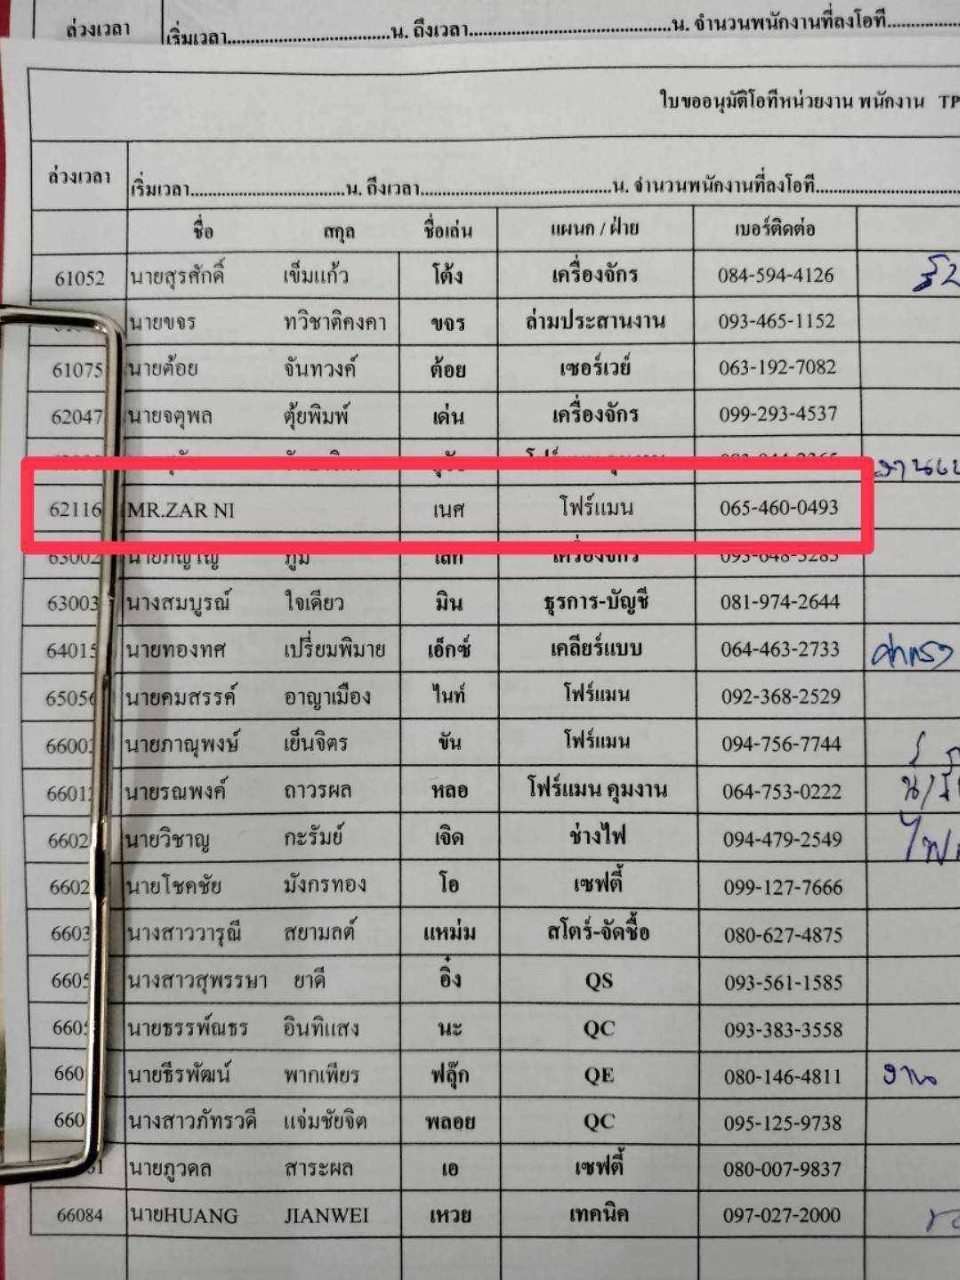 ล่วงเวลา เริ่มเวลา................................น. ถึงเวลา........................................น. จำนวนพนักงานที่ลงโอที...............
ใบขออนุมัติโอทีหน่วยงาน พนักงาน TP
ล่วงเวลา เริ่มเวลา................................น. ถึงเวลา........................................น. จำนวนพนักงานที่ลงโอที...............
ชื่อ สกุล ชื่อเล่น แผนก / ฝ่าย เบอร์ติดต่อ
61052 นายสุรศักดิ์ เข็มแก้ว โต้ง เครื่องจักร 084-594-4126
นายขจร ทวิชาติคงคา ขจร ล่ามประสานงาน 093-465-1152
61075 นายต้อย จันทวงค์ ต้อย เซอร์เวย์ 063-192-7082
62047 นายจตุพล ตุ้ยพิมพ์ เด่น เครื่องจักร 099-293-4537
62116 MR.ZAR NI เนศ โฟร์แมน 065-460-0493
63002 นายภิญโญ ภูมิ เล็ก เครื่องจักร 093-648-3285
63003 นางสมบูรณ์ ใจเดียว มิน ธุรการ-บัญชี 081-974-2644
64015 นายทองทศ เปรี่ยมพิมาย เอ็กซ์ เคลียร์แบบ 064-463-2733
65056 นายคมสรรค์ อาญาเมือง ไนท์ โฟร์แมน 092-368-2529
6600 นายภาณุพงษ์ เย็นจิตร ขัน โฟร์แมน 094-756-7744
6601 นายรณพงค์ ถาวรผล หลอ โฟร์แมน คุมงาน 064-753-0222
6602 นายวิชาญ กะรัมย์ เจิด ช่างไฟ 094-479-2549
6602 นายโชคชัย มังกรทอง โอ เซฟตี้ 099-127-7666
6603 นางสาววารุณี สยามลต์ แหม่ม สโตร์-จัดซื้อ 080-627-4875
6605 นางสาวสุพรรษา ยาดี อิ๋ง QS 093-561-1585
6605 นายธรรพ์ณธร อินทิแสง นะ QC 093-383-3558
660 นายธีรพัฒน์ พากเพียร ฟลุ๊ก QE 080-146-4811 งาน
660 นางสาวภัทรวดี แจ่มชัยจิต พลอย QC 095-125-9738
นายภูวดล สาระผล เอ เซฟตี้ 080-007-9837
66084 นายHUANG JIANWEI เหวย เทคนิค 097-027-2000